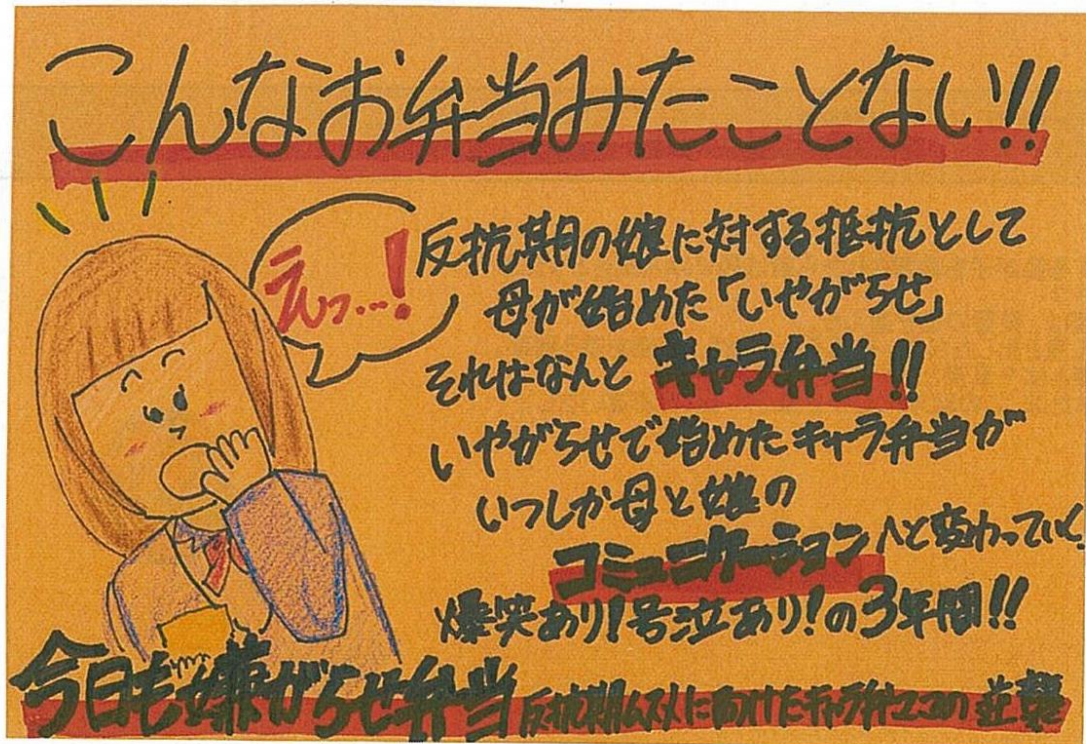 こんなお弁当みたことない!!
えっ…!
反抗期の娘に対する抵抗として
母が始めた「いやがらせ」
それはなんと キャラ弁当!!
いやがらせで始めたキャラ弁当が
いつしか母と娘の
コミュニケーションへと変わっていく。
爆笑あり!号泣あり!の3年間!!
今日も嫌がらせ弁当 反抗期ムスメに向けたキャラ弁ママの逆襲